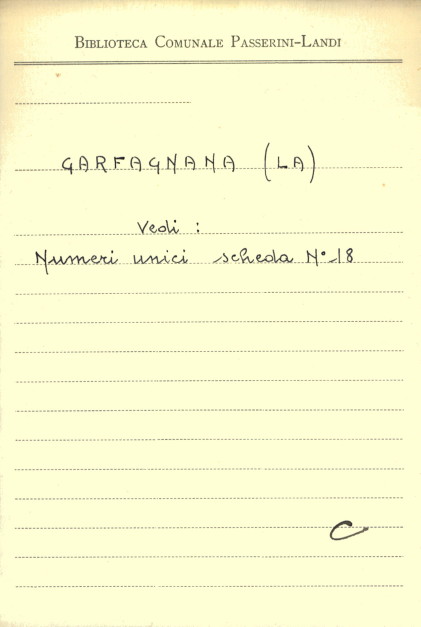 BIBLIOTECA COMUNALE PASSERINI-LANDI
GARFAGNANA (LA)
Vedi :
Numeri unici scheda N° 18
C